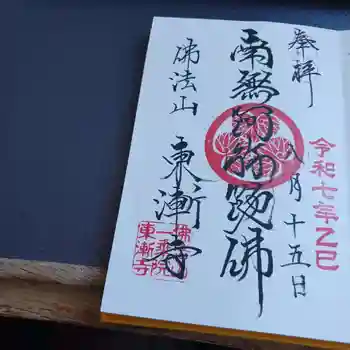 奉拝
令和七年乙巳
八月十五日
南無阿弥陀佛
佛法山
東漸寺
佛
一乗院
東漸寺